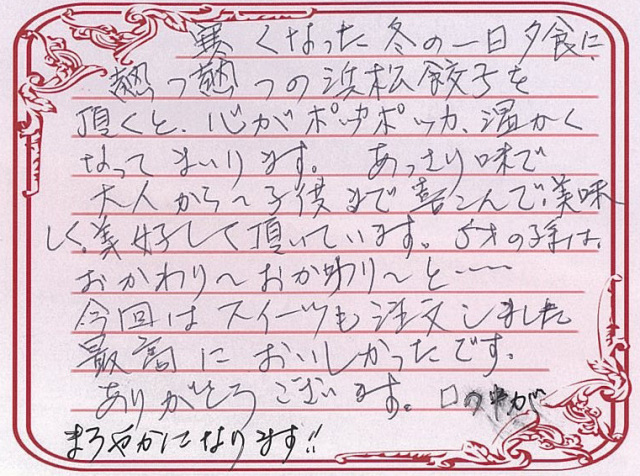 寒くなった冬の一日夕食に、
熱つ熱つの浜松餃子を
頂くと、心がポッカポッカ、温かく
なってまいります。 あっさり味で
大人から〜子供まで喜こんで、美味
しく、美好して頂いています。5才の子は、
おかわり〜おかわり〜と〜〜
今回はスイーツも注文しました
最高においしかったです。
ありがとうございます。口の中が
まろやかになります!!